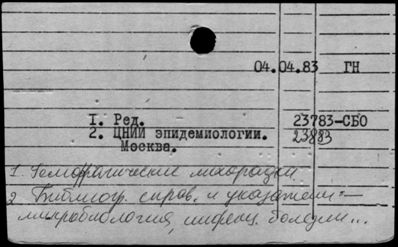 04.04.83 ГН
I. Ред. 23783-СБО
2. ЦНИИ эпидемиологии. 23883
Москва.
1 Геморрагические лихорадки
2 Библиогр. справ. и указатели –
микробиология, инфекц. болезни...